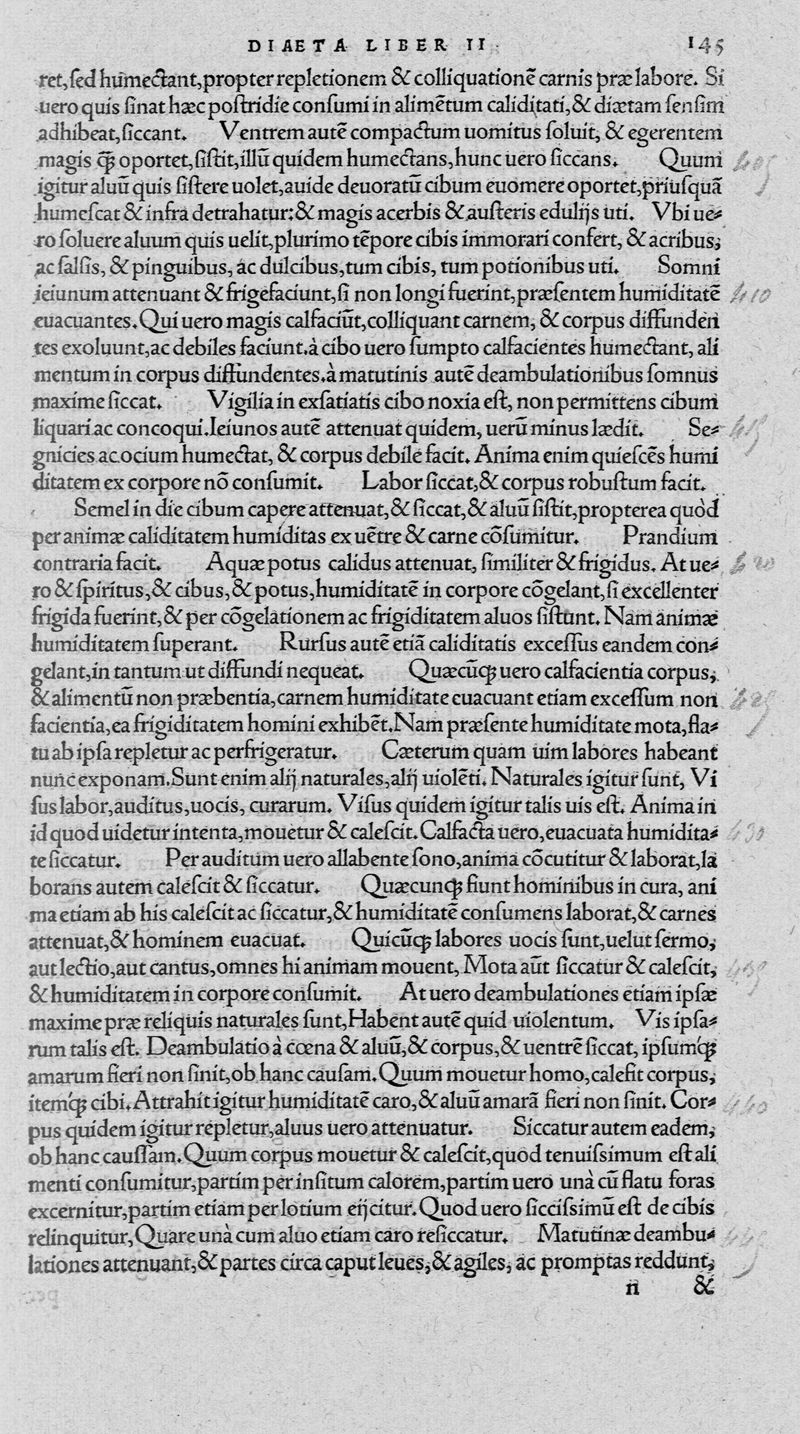 DIAETA LIBER II. 145
ret,ſed humectant,propter repletionem & colliquationẽ carnis præ labore. Si
uero quis ſinat hæc poſtridie conſumi in alimẽtum caliditati,& diætam ſenſim
adhibeat,ſiccant. Ventrem autẽ compactum uomitus ſoluit, & egerentem
magis ꝙ̃ oportet,ſiſtit,illũ quidem humectans,hunc uero ſiccans. Quum
igitur aluũ quis ſiſtere uolet,auide deuoratũ cibum euomere oportet,priuſquã
humeſcat & infra detrahatur:& magis acerbis & auſteris edulijs uti. Vbi ue⸗
ro ſoluere aluum quis uelit,plurimo tẽpore cibis immorari confert, & acribus,
ac ſalſis, & pinguibus, ac dulcibus,tum cibis, tum potionibus uti. Somni
ieiunum attenuant & frigefaciunt,ſi non longi fuerint,præſentem humiditatẽ
euacuantes.Qui uero magis calfaciũt,colliquant carnem, & corpus diffunden
tes exoluunt,ac debiles faciunt.à cibo uero ſumpto calfacientes humectant, ali
mentum in corpus diffundentes.à matutinis autẽ deambulationibus ſomnus
maxime ſiccat. Vigilia in exſatiatis cibo noxia eſt, non permittens cibum
liquari ac concoqui.Ieiunos autẽ attenuat quidem, uerũ minus lædit. Se⸗
gnicies ac ocium humectat, & corpus debile facit. Anima enim quieſcẽs humi
ditatem ex corpore nõ conſumit. Labor ſiccat,& corpus robuſtum facit.
Semel in die cibum capere attenuat,& ſiccat,& aluũ ſiſtit,propterea quòd
per animæ caliditatem humiditas ex uẽtre & carne cõſumitur. Prandium
contraria facit. Aquæ potus calidus attenuat, ſimiliter & frigidus. At ue⸗
ro & ſpiritus,& cibus,& potus,humiditatẽ in corpore cõgelant,ſi excellenter
frigida fuerint,& per cõgelationem ac frigiditatem aluos ſiſtunt. Nam animæ
humiditatem ſuperant. Rurſus autẽ etiã caliditatis exceſſus eandem con⸗
gelant,in tantum ut diffundi nequeat. Quæcũꝙ uero calfacientia corpus,
& alimentũ non præbentia,carnem humiditate euacuant etiam exceſſum non
facientia,ea frigiditatem homini exhibẽt.Nam præſente humiditate mota,fla⸗
tu ab ipſa repletur ac perfrigeratur. Cæterum quam uim labores habeant
nunc exponam.Sunt enim alij naturales,alij uiolẽti. Naturales igitur ſunt, Vi
ſus labor,auditus,uocis, curarum. Viſus quidem igitur talis uis eſt. Anima in
id quod uidetur intenta,mouetur & caleſcit.Calfacta uero,euacuata humidita⸗
te ſiccatur. Per auditum uero allabente ſono,anima cõcutitur & laborat,la
borans autem caleſcit & ſiccatur. Quæcunꝙ fiunt hominibus in cura, ani
ma etiam ab his caleſcit ac ſiccatur,& humiditatẽ conſumens laborat,& carnes
attenuat,& hominem euacuat. Quicũꝙ labores uocis ſunt,uelut ſermo,
aut lectio,aut cantus,omnes hi animam mouent, Mota aũt ſiccatur & caleſcit,
& humiditatem in corpore conſumit. At uero deambulationes etiam ipſæ
maxime præ reliquis naturales ſunt,Habent autẽ quid uiolentum. Vis ipſa⸗
rum talis eſt. Deambulatio à cœna & aluũ,& corpus,& uentrẽ ſiccat, ipſumꝙ́
amarum fieri non ſinit,ob hanc cauſam.Quum mouetur homo,calefit corpus,
itemꝙ́ cibi.Attrahit igitur humiditatẽ caro,& aluũ amarã fieri non ſinit. Cor⸗
pus quidem igitur repletur,aluus uero attenuatur. Siccatur autem eadem,
ob hanc cauſſam.Quum corpus mouetur & caleſcit,quod tenuiſsimum eſt ali
menti conſumitur,partim per inſitum calorem,partim uero unà cũ flatu foras
excernitur,partim etiam per lotium eijcitur.Quod uero ſicciſsimũ eſt de cibis
relinquitur,Quare unà cum aluo etiam caro reſiccatur. Matutinæ deambu⸗
lationes attenuant,& partes circa caput leues,& agiles, ac promptas reddunt,
n &